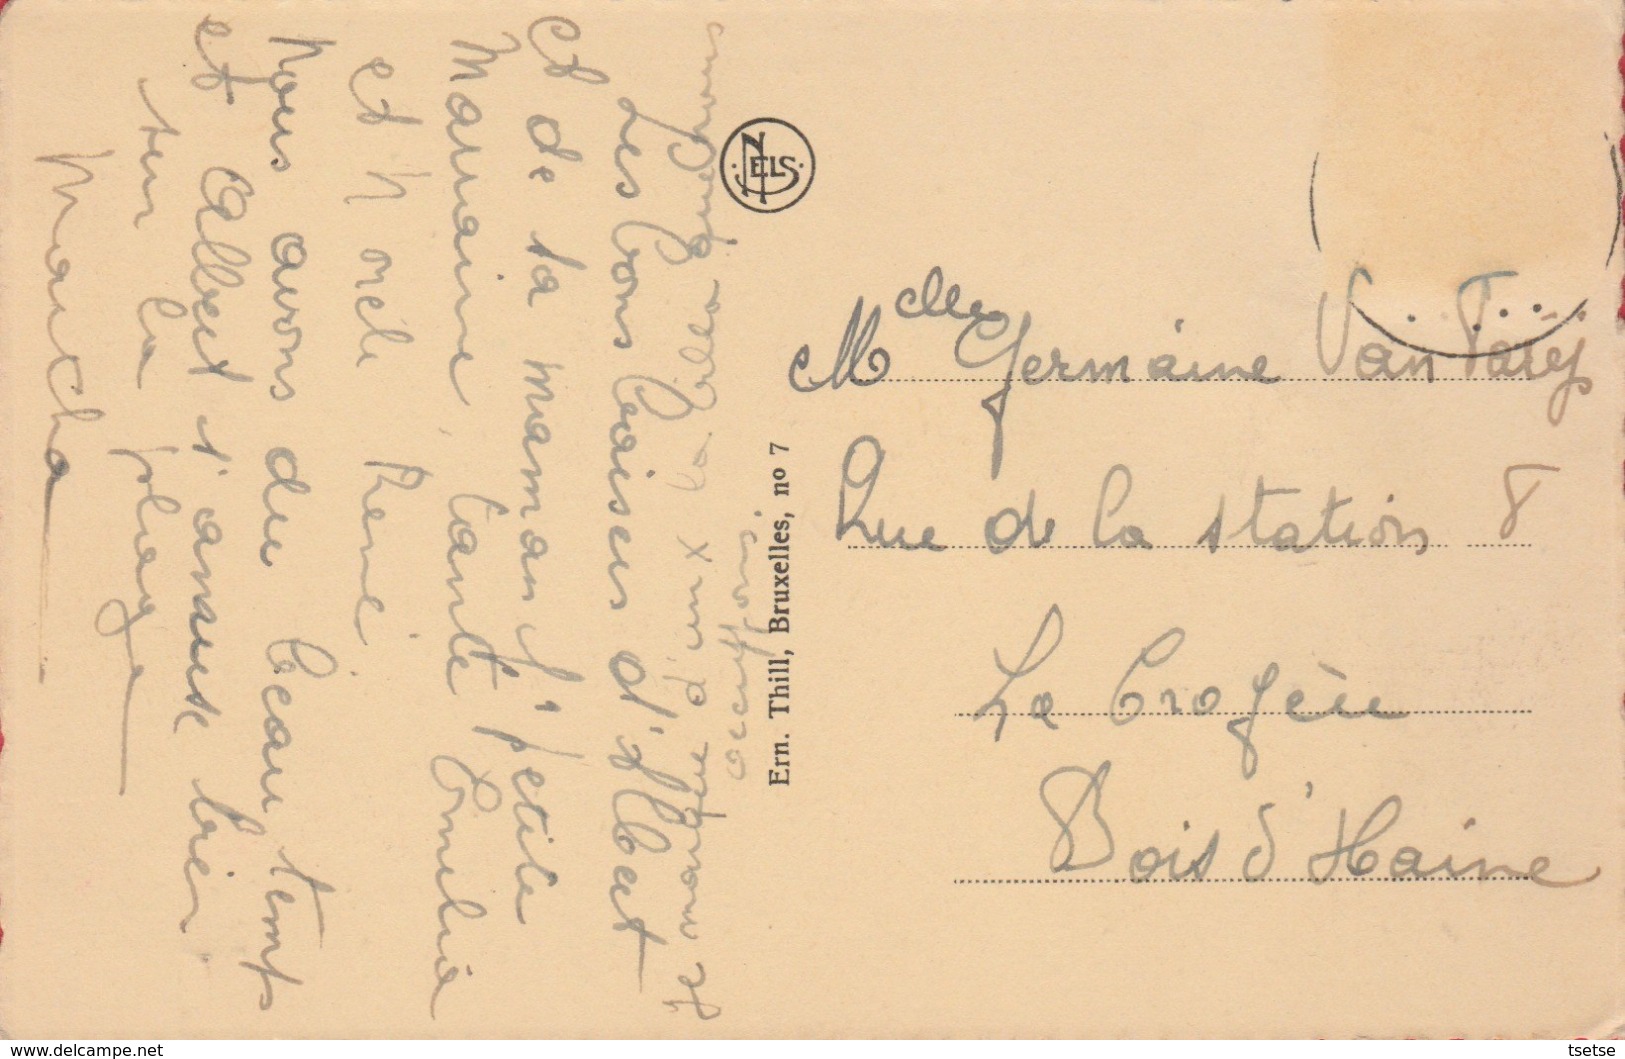 Les bons baisers d'Albert
et de ta maman, petite
Marraine, tante Emilie
et Noële René
Nous avons du beau temps
et Albert s'amuse bien
sur la plage
Maritcha
NELS
Ern. Thill, Bruxelles, nº 7
Melle Germaine Van Parÿs
Rue de la station 8
La Croyère
Bois d'Haine
tsetse
delcampe.net